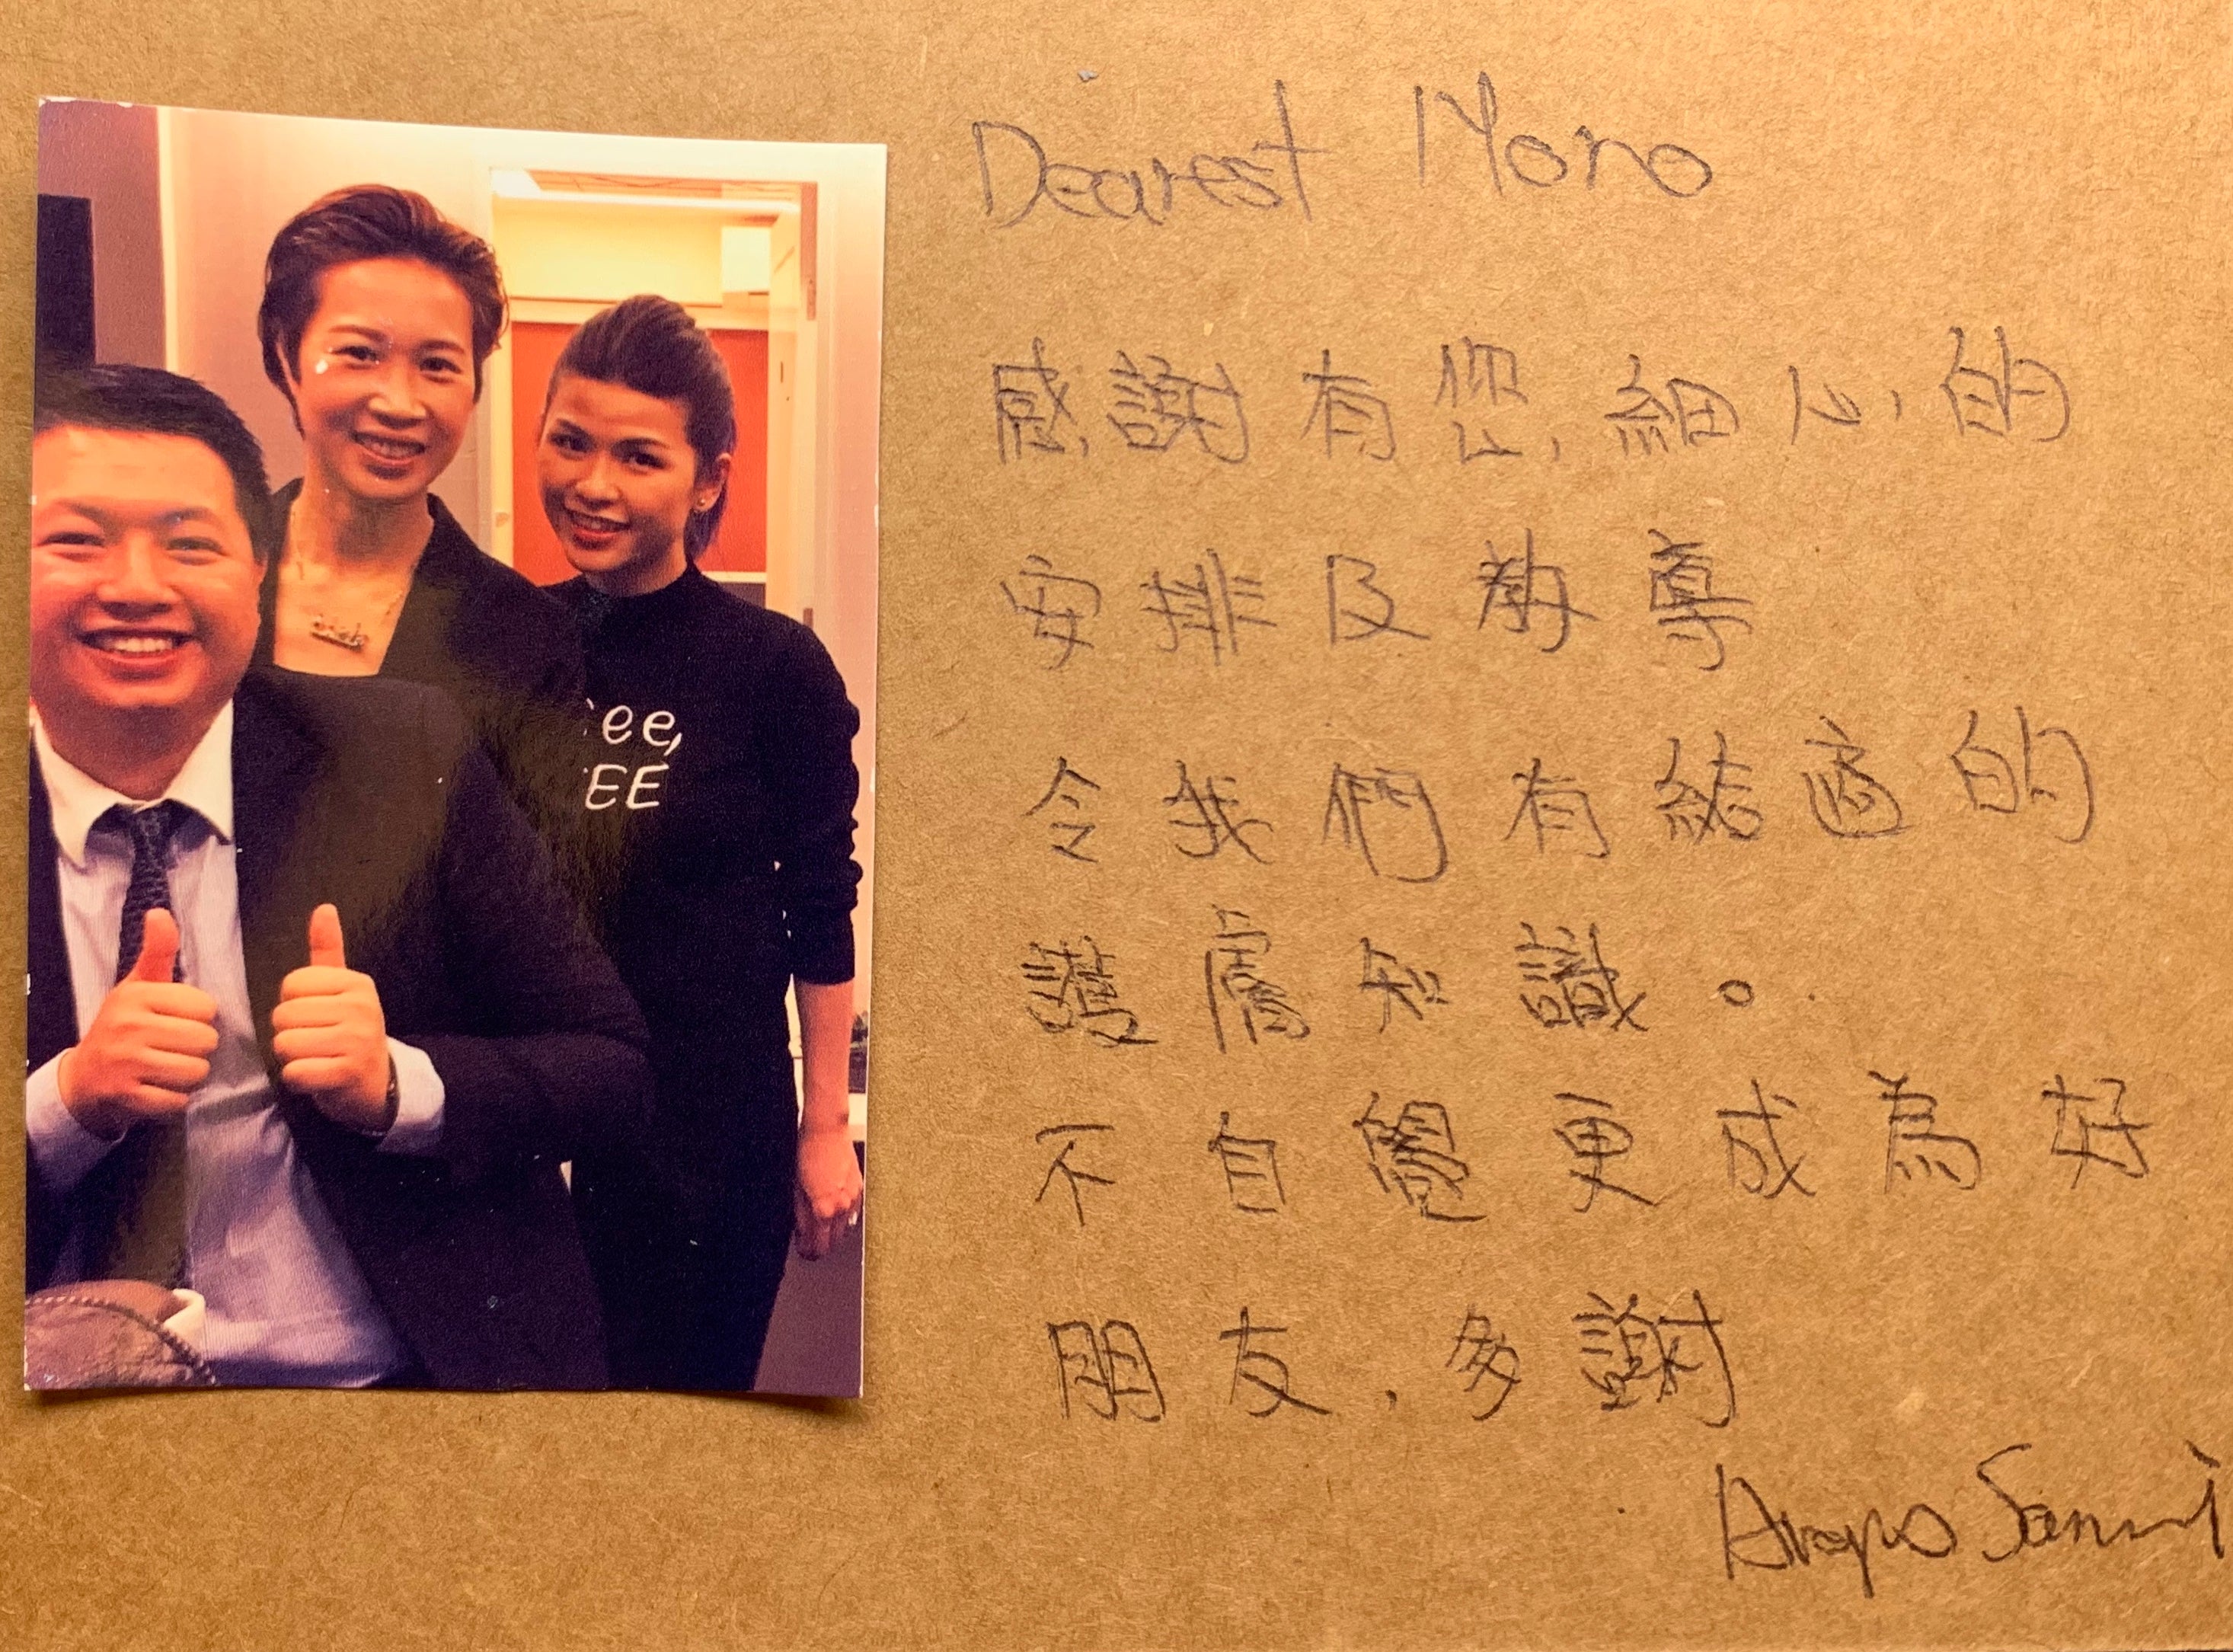 ee,
EE
Dearest Mono
感謝有您,細心的
安排及教導
令我們有結適的
護膚知識。
不自覺更成為好
朋友,多謝